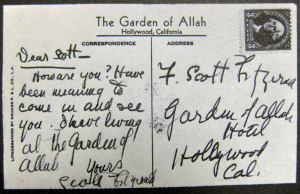 The Garden of Allah
Hollywood, California
CORRESPONDENCE
ADDRESS
Dear Scott—
How are you? Have
been meaning to
come in and see
you. I have living
at the Garden of
Allah
Yours
Scott Fitzgerald
F. Scott Fitzgerald
Garden of Allah
Hotel
Hollywood
Cal.